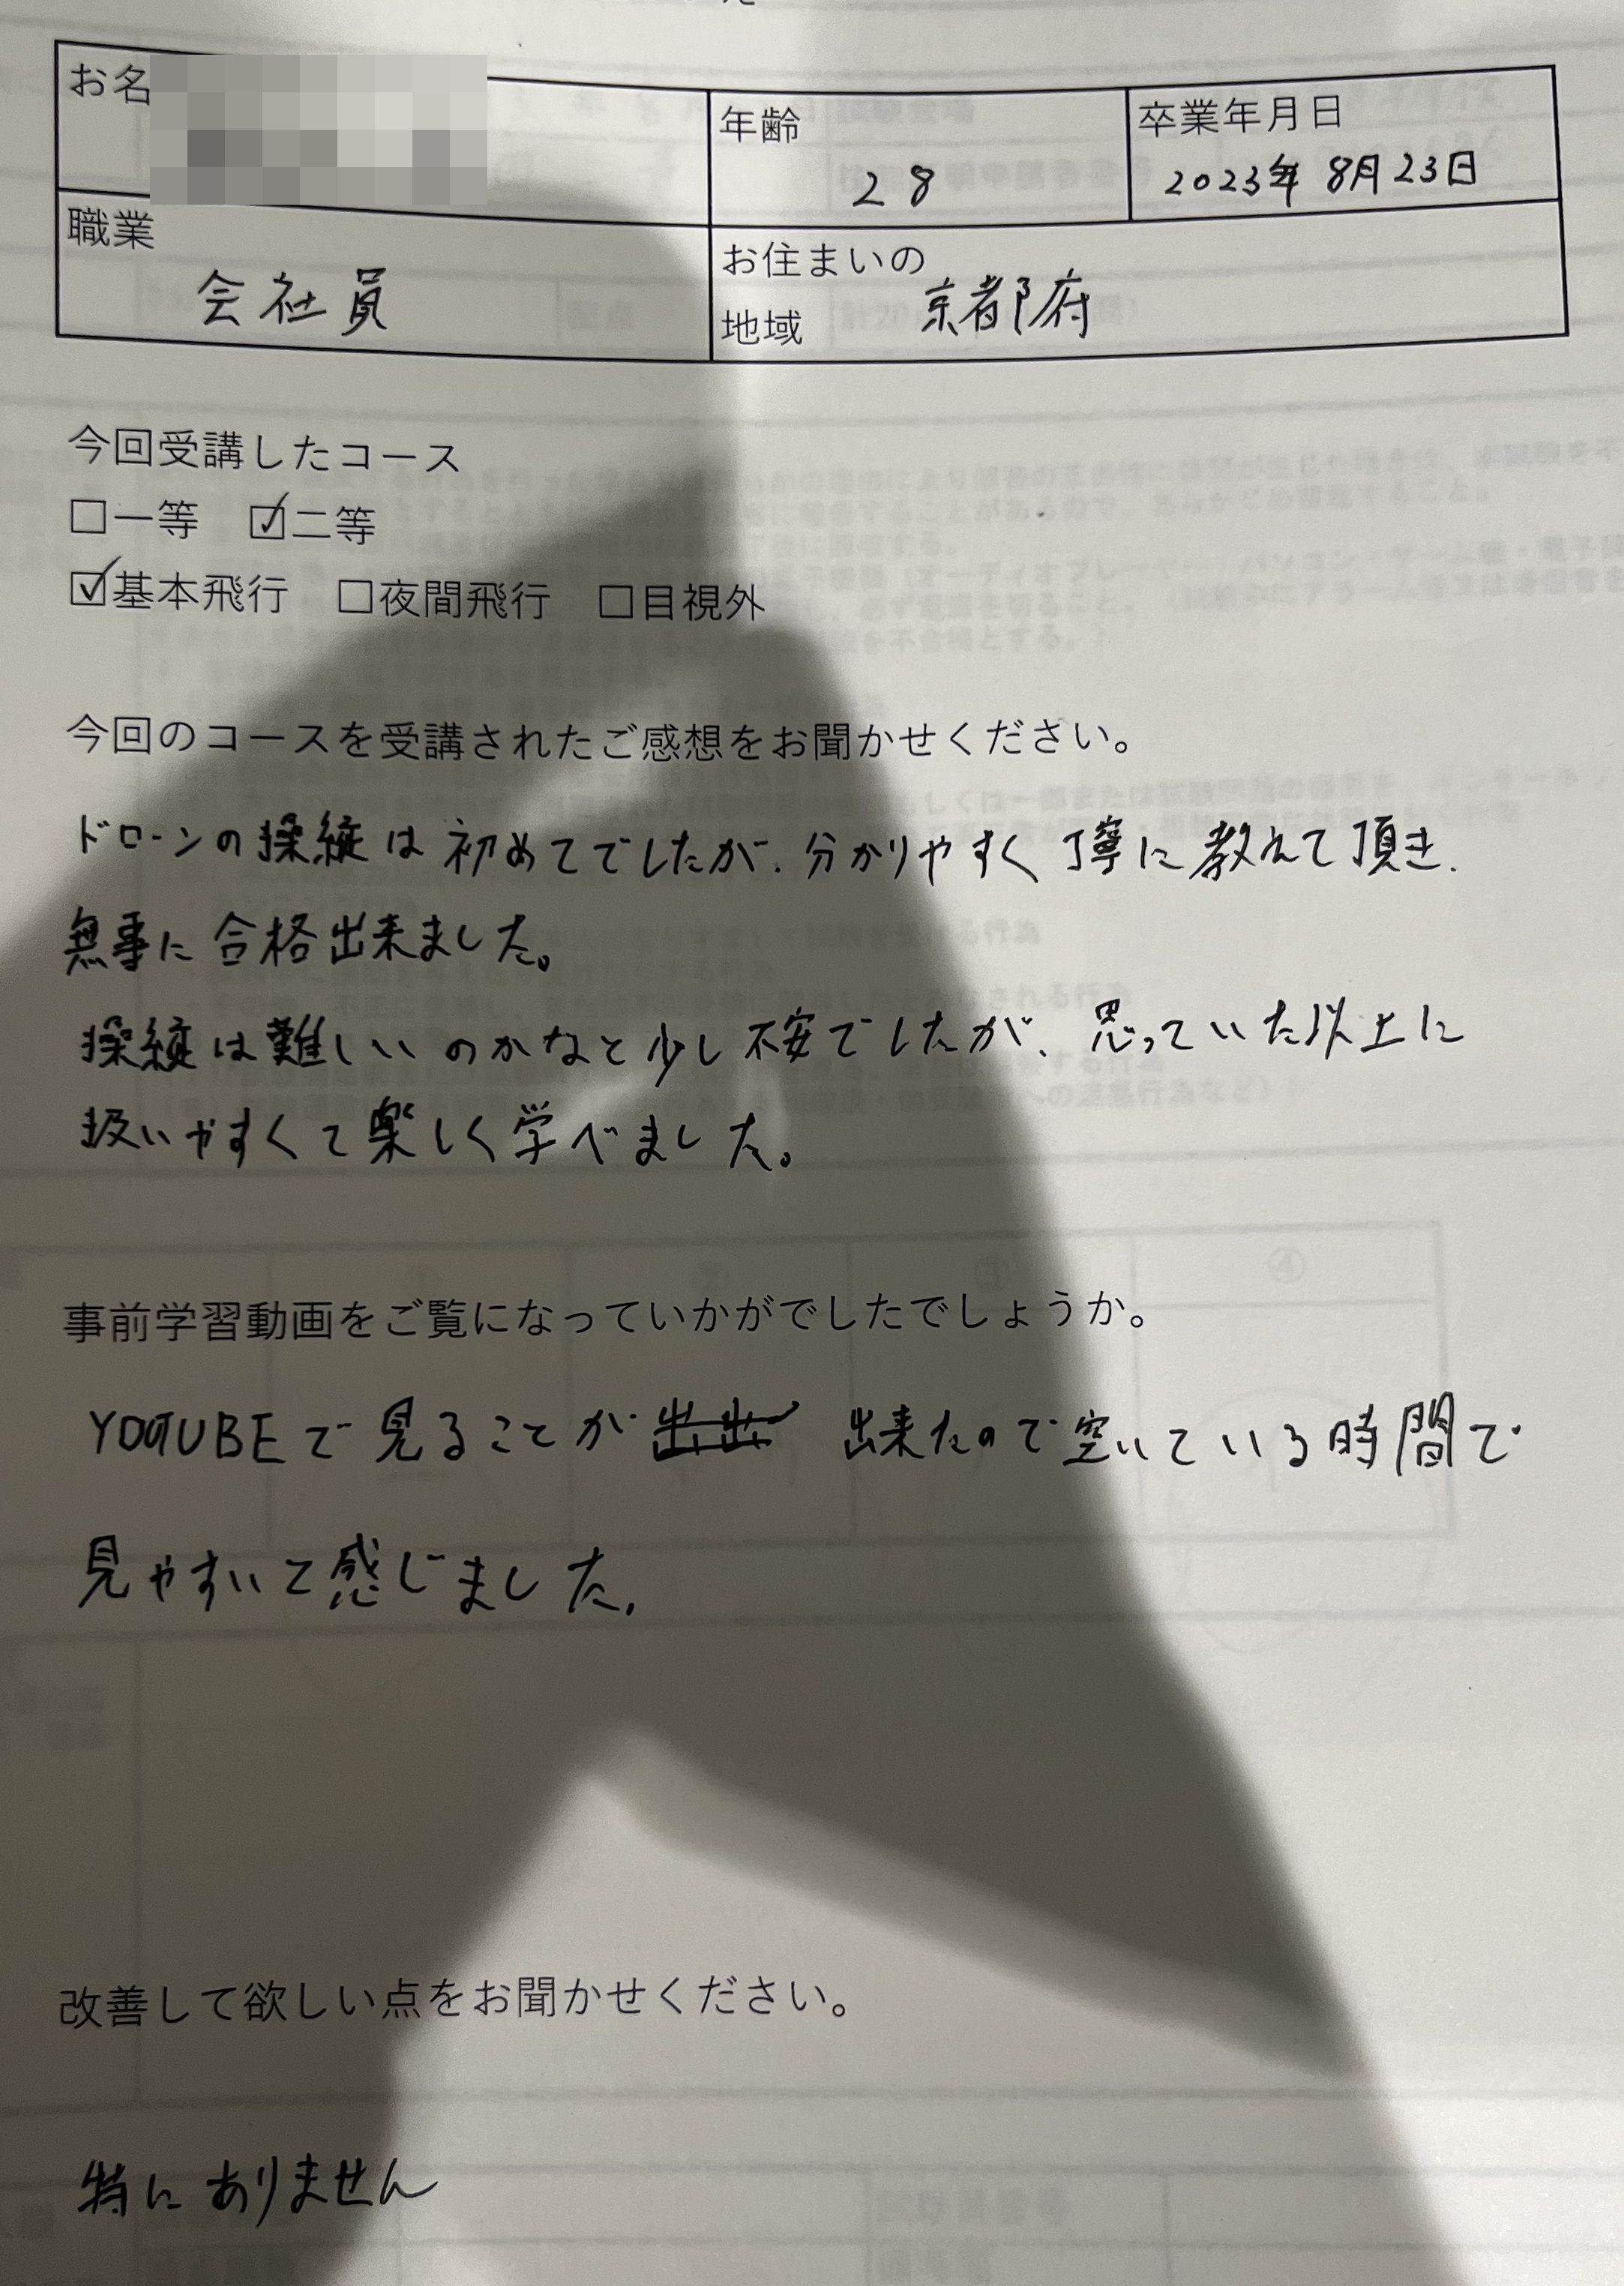 お名
年齢
28
卒業年月日
2023年 8月23日
職業
会社員
お住まいの
地域
京都府
今回受講したコース
□一等 ☑二等
☑基本飛行 □夜間飛行 □目視外
今回のコースを受講されたご感想をお聞かせください。
ドローンの操縦は初めてでしたが、分かりやすく丁寧に教えて頂き、
無事に合格出来ました。
操縦は難しいのかなと少し不安でしたが、思っていた以上に
扱いやすくて楽しく学べました。
事前学習動画をご覧になっていかがでしたでしょうか。
YOUTUBEで見ることが 出来たので空いている時間で
見やすいと感じました。
改善して欲しい点をお聞かせください。
特にありません